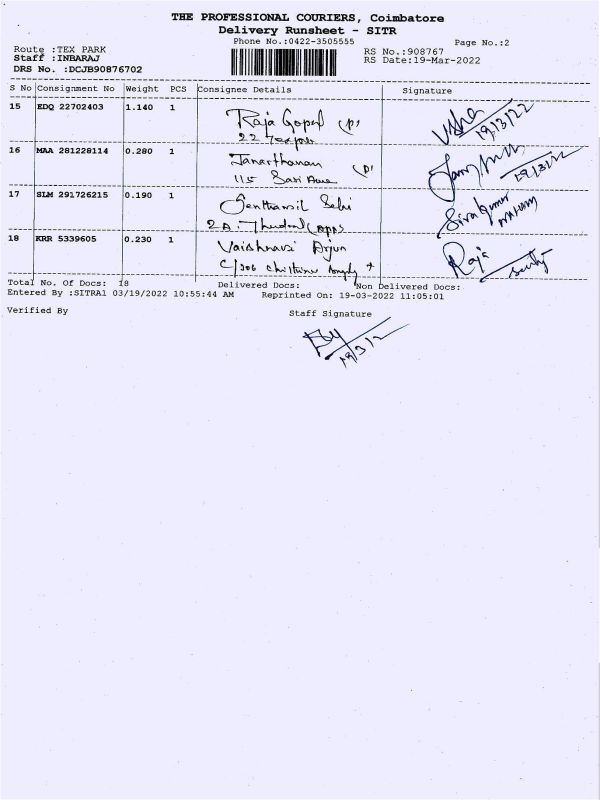 THE PROFESSIONAL COURIERS, Coimbatore
Delivery Runsheet - SITR
Phone No.:0422-3505555 Page No.:2
Route :TEX PARK RS No.:908767
Staff :INBARAJ RS Date:19-Mar-2022
DRS No. :DCJB90876702
S No Consignment No Weight PCS Consignee Details Signature
15 EDQ 22702403 1.140 1 Raja Gopal
22
19/3/22
16 MAA 281228114 0.280 1 Janarthanan
115
19/3/22
17 SLM 291726215 0.190 1
2A
Sivakumar
18 KRR 5339605 0.230 1 Vaishnavi Arjun
Raja
Total No. Of Docs: 18 Delivered Docs: Non Delivered Docs:
Entered By :SITRA1 03/19/2022 10:55:44 AM Reprinted On: 19-03-2022 11:05:01
Verified By Staff Signature
19/3/22